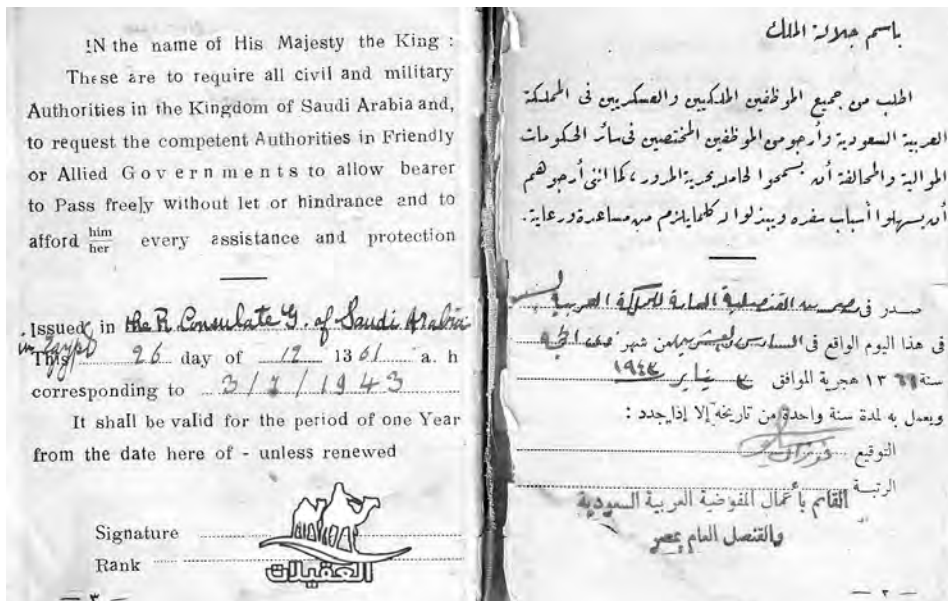 IN the name of His Majesty the King :
These are to require all civil and military
Authorities in the Kingdom of Saudi Arabia and,
to request the competent Authorities in Friendly
or Allied Governments to allow bearer
to Pass freely without let or hindrance and to
afford him/her every assistance and protection
Issued in the R. Consulate G. of Saudi Arabia
in Egypt
This 26 day of 12 1361 a. h
corresponding to 3/1/1943
It shall be valid for the period of one Year
from the date here of - unless renewed
Signature
Rank
العقيلات
— ٣ —
باسم جلالة الملك
اطلب من جميع الموظفين الملكيين والعسكريين فى المملكة
العربية السعودية وأرجو من الموظفين المختصين فى سائر الحكومات
الموالية والمحالفة أن يسمحوا لحامله بحرية المرور ، كما اننى أرجوهم
أن يسهلوا أسباب سفره ويبذلوا له كلما يلزم من مساعدة ورعاية .
صدر فى مصر من القنصلية العامة للمملكة العربية
فى هذا اليوم الواقع فى السادس والعشرين من شهر ذى الحجة
سنة ١٣٦١ هجرية الموافق ٣ يناير ١٩٤٣
ويعمل به لمدة سنة واحدة من تاريخه إلا إذا جدد :
التوقيع
الرتبة
القائم بأعمال المفوضية العربية السعودية
والقنصل العام بمصر
— ٢ —